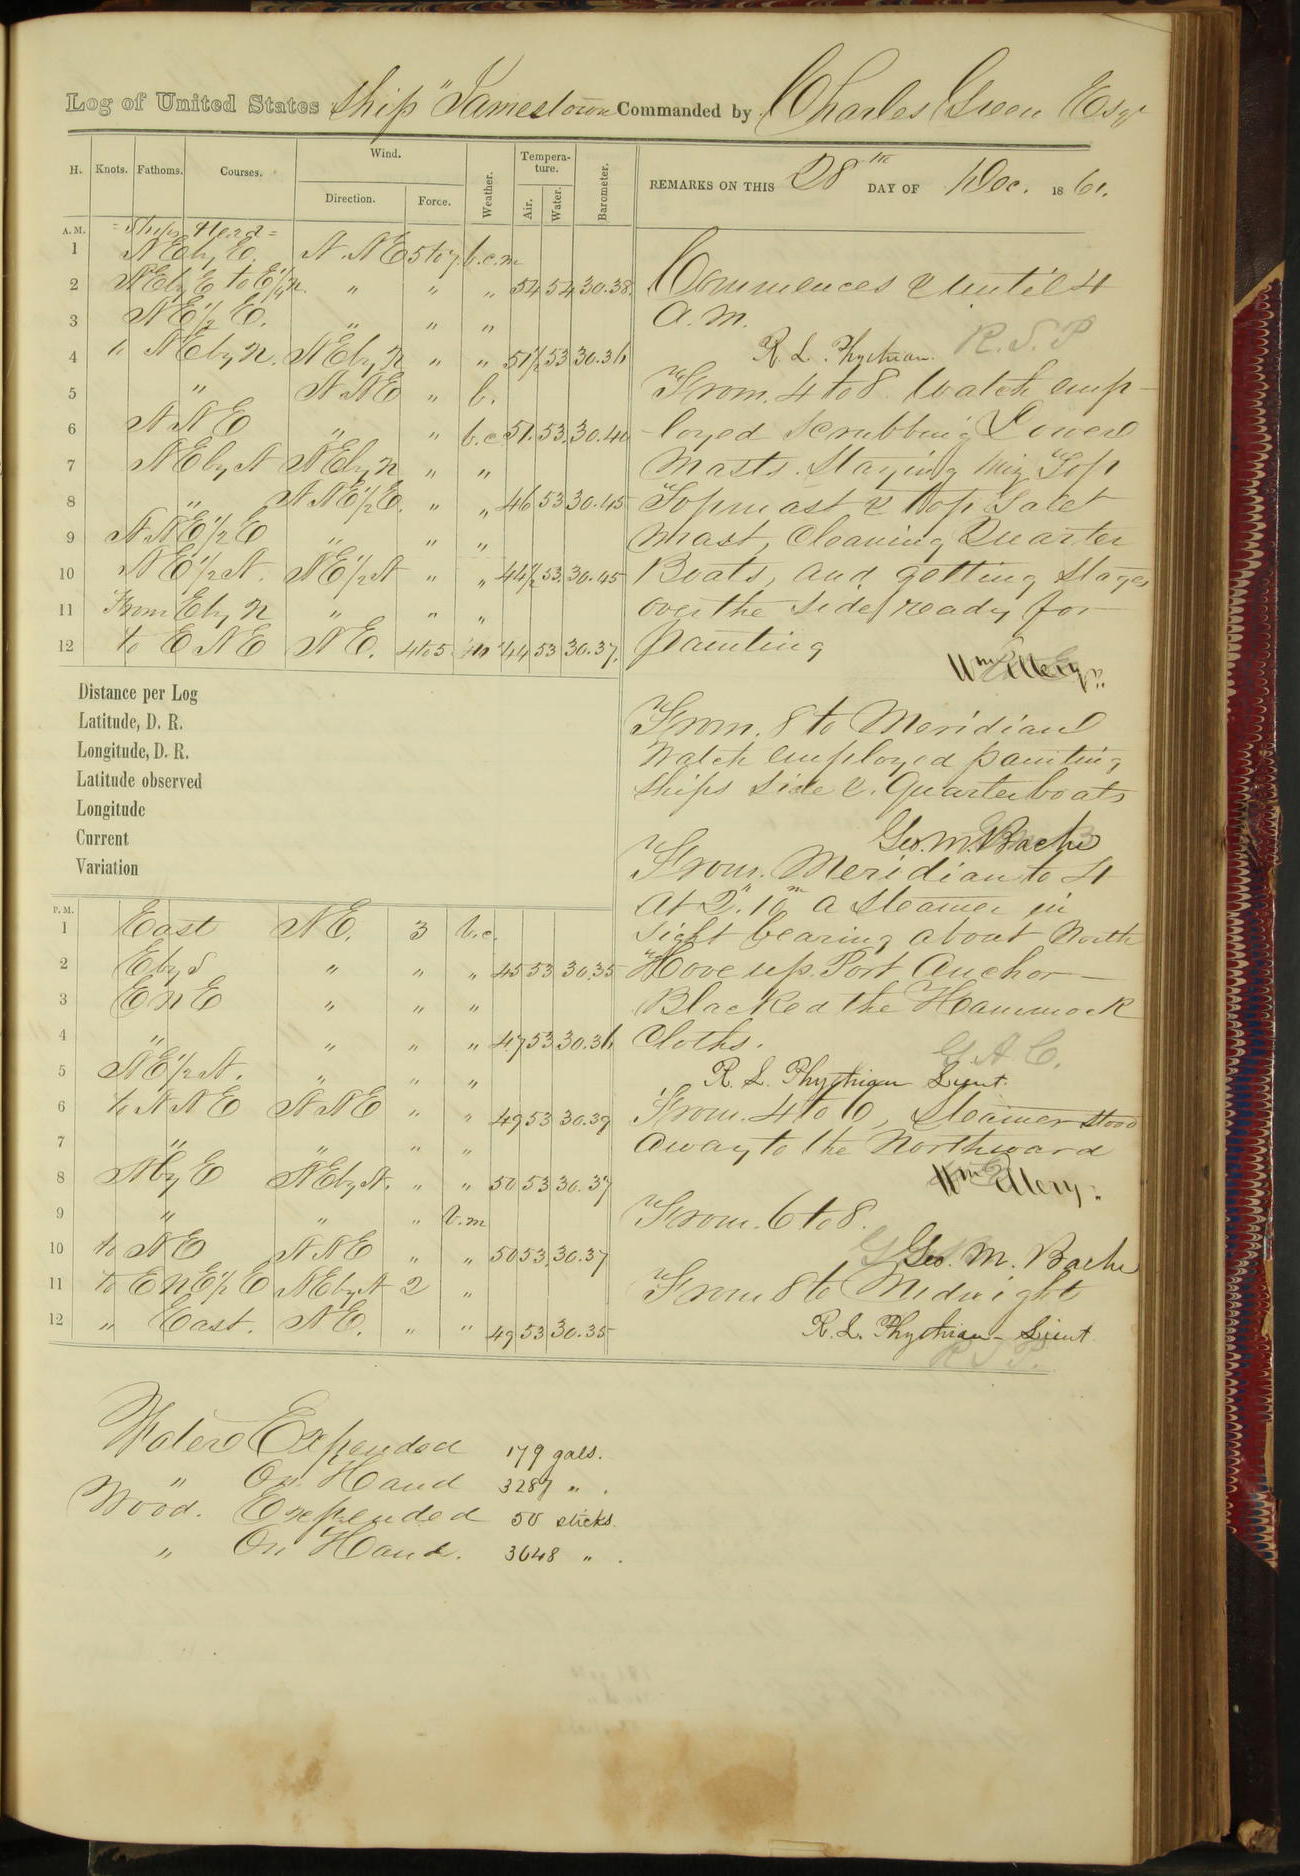 Log of United States Ship "Jamestown" Commanded by Charles Green Esqr
H. Knots. Fathoms. Courses. Wind. Direction. Force. Weather. Tempera-ture. Air. Water. Barometer. REMARKS ON THIS 28th DAY OF Dec. 1861.
A.M. = Ships Head =
1 NE by E. N. NE 5 to 7. b.c.m
2 NE by E to E 1/4 n. " " " 54 54 30.38
3 NE 1/2 E. " " "
4 to NE by N. NE by N " " 51 1/2 53 30.36
5 " N NE " b.
6 N NE " " b.c 51. 53. 30.40
7 NE by N NE by N " "
8 " N NE 1/2 E. " " 46 53 30.45
9 N NE 1/2 E " " "
10 NE 1/2 N. NE 1/2 N " " 44 1/2 53. 30.45
11 From E by N " " "
12 to ENE NE. 4 to 5 " 44 53 30.37.
Commences & until 4
A.M.
R. L. Phythian. R.L.P
From. 4 to 8. Watch emp-
loyed scrubbing Lower
Masts. Staying Miz. Top
Topmast & Top Galt
Mast, Cleaning Quarter
Boats, and getting Stages
over the side ready for
painting
Wm Ellery
From. 8 to Meridian
Watch employed painting
Ships side & Quarterboats
Geo. M. Bache
Distance per Log
Latitude, D. R.
Longitude, D. R.
Latitude observed
Longitude
Current
Variation
P.M.
1 East NE. 3 b.c.
2 E by S " " " 45 53 30.35
3 E N E " " "
4 " " " " 47 53 30.36
5 NE 1/2 N. " " "
6 to N NE N NE " " 49 53 30.39
7 " " " "
8 N by E NE by N. " " 50 53 30.37
9 " " " b.m
10 to NE N NE " " 50 53 30.37
11 to E N E 1/2 E NE by N 2 "
12 " East. NE. " " 49 53 30.35
From. Meridian to 4
At 2h. 10m a Steamer in
sight bearing about North
Hove up Port Anchor
Blacked the Hammock
Cloths.
R. L. Phythian Lieut.
From. 4 to 6, Steamer stood
away to the Northward
Wm Ellery.
From. 6 to 8.
Geo. M. Bache
From 8 to Midnight
R. L. Phythian - Lieut
Water Expended 179 gals.
" On Hand 3287 " .
Wood. Expended 50 sticks.
" On Hand. 3648 " .